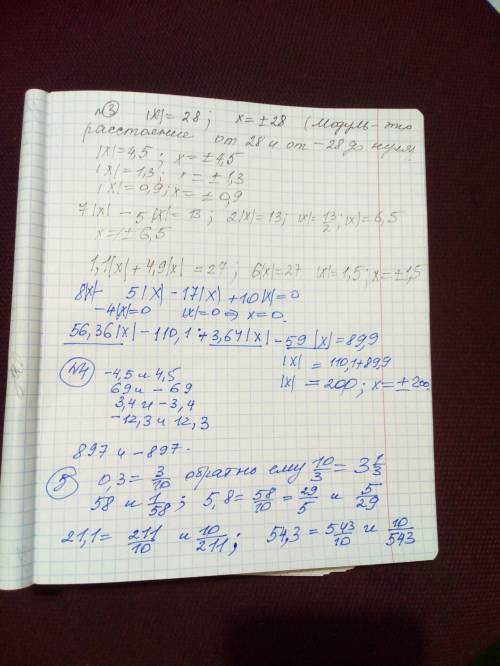 №3 |x|= 28; x=±28 (Модуль - это
расстояние от 28 и от -28 до нуля
|x|=4,5; x=±4,5
|x|=1,3; x=±1,3
|x|=0,9; x=±0,9
7|x| - 5|x|= 13; 2|x|=13; |x|=13/2; |x|=6,5
x=±6,5
1,1|x|+4,9|x|=27; 6|x|=27 |x|=1,5; x=±1,5
8|x|- 5|x|-17|x|+10|x|=0
-4|x|=0 |x|=0 => x=0.
56,36|x|-110,1+3,64|x|-59|x|=89,9
|x|=110,1+89,9
|x|=200; x=±200.
№4 -4,5 и 4,5
69 и -69
3,4 и -3,4
-12,3 и 12,3
897 и -897.
5 0,3=3/10 обратно ему 10/3=3 1/3
58 и 1/58; 5,8=58/10=29/5 и 5/29
21,1=211/10 и 10/211; 54,3=543/10 и 10/543